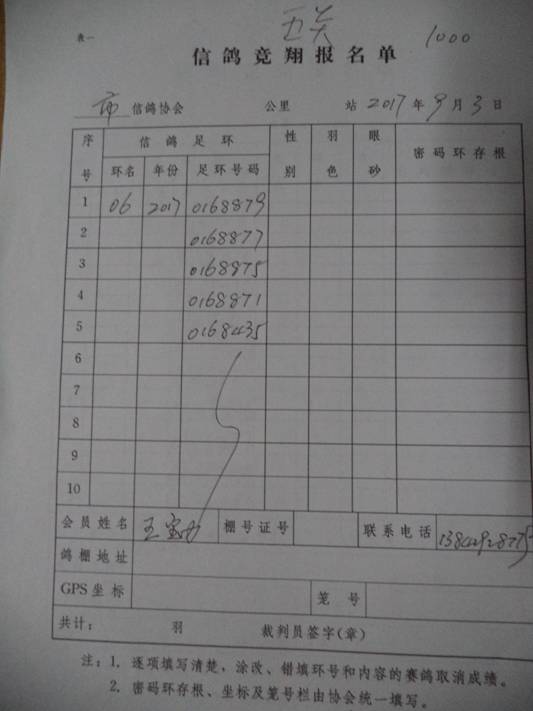 五关
1000
表一
信鸽竞翔报名单
市信鸽协会 公里 站 2017年9月3日
序号 信鸽足环 性别 羽色 眼砂 密码环存根
环名 年份 足环号码
1 06 2017 0168879
2 0168877
3 0168975
4 0168871
5 0168435
6
7
8
9
10
会员姓名 王宝 棚号证号 联系电话
鸽棚地址
GPS坐标 笼号
共计： 羽 裁判员签字(章)
注：1. 逐项填写清楚，涂改、错填环号和内容的赛鸽取消成绩。
2. 密码环存根、坐标及笼号栏由协会统一填写。